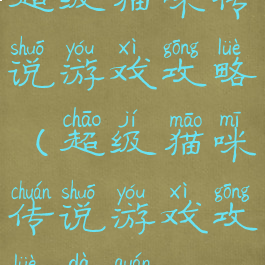 超级猫咪传
shuō yóu xì gōng lüè
说游戏攻略
chāo jí māo mī
（超级猫咪
chuán shuō yóu xì gōng
传说游戏攻
lüè dà quán